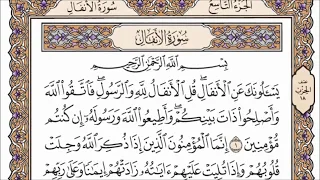 سُورَةُ الأَنفَالِ
الجُزْءُ التَّاسِعُ
سُورَةُ الأَنفَالِ
بِسْمِ اللَّهِ الرَّحْمَٰنِ الرَّحِيمِ
يَسْـَٔلُونَكَ عَنِ الْأَنفَالِ ۖ قُلِ الْأَنفَالُ لِلَّهِ وَالرَّسُولِ ۖ فَاتَّقُوا اللَّهَ
وَأَصْلِحُوا ذَاتَ بَيْنِكُمْ ۖ وَأَطِيعُوا اللَّهَ وَرَسُولَهُ إِن كُنتُم
مُّؤْمِنِينَ ١ إِنَّمَا الْمُؤْمِنُونَ الَّذِينَ إِذَا ذُكِرَ اللَّهُ وَجِلَتْ
قُلُوبُهُمْ وَإِذَا تُلِيَتْ عَلَيْهِمْ ءَايَٰتُهُ زَادَتْهُمْ إِيمَٰنًا وَعَلَىٰ رَبِّهِمْ
الحِزْب
١٨